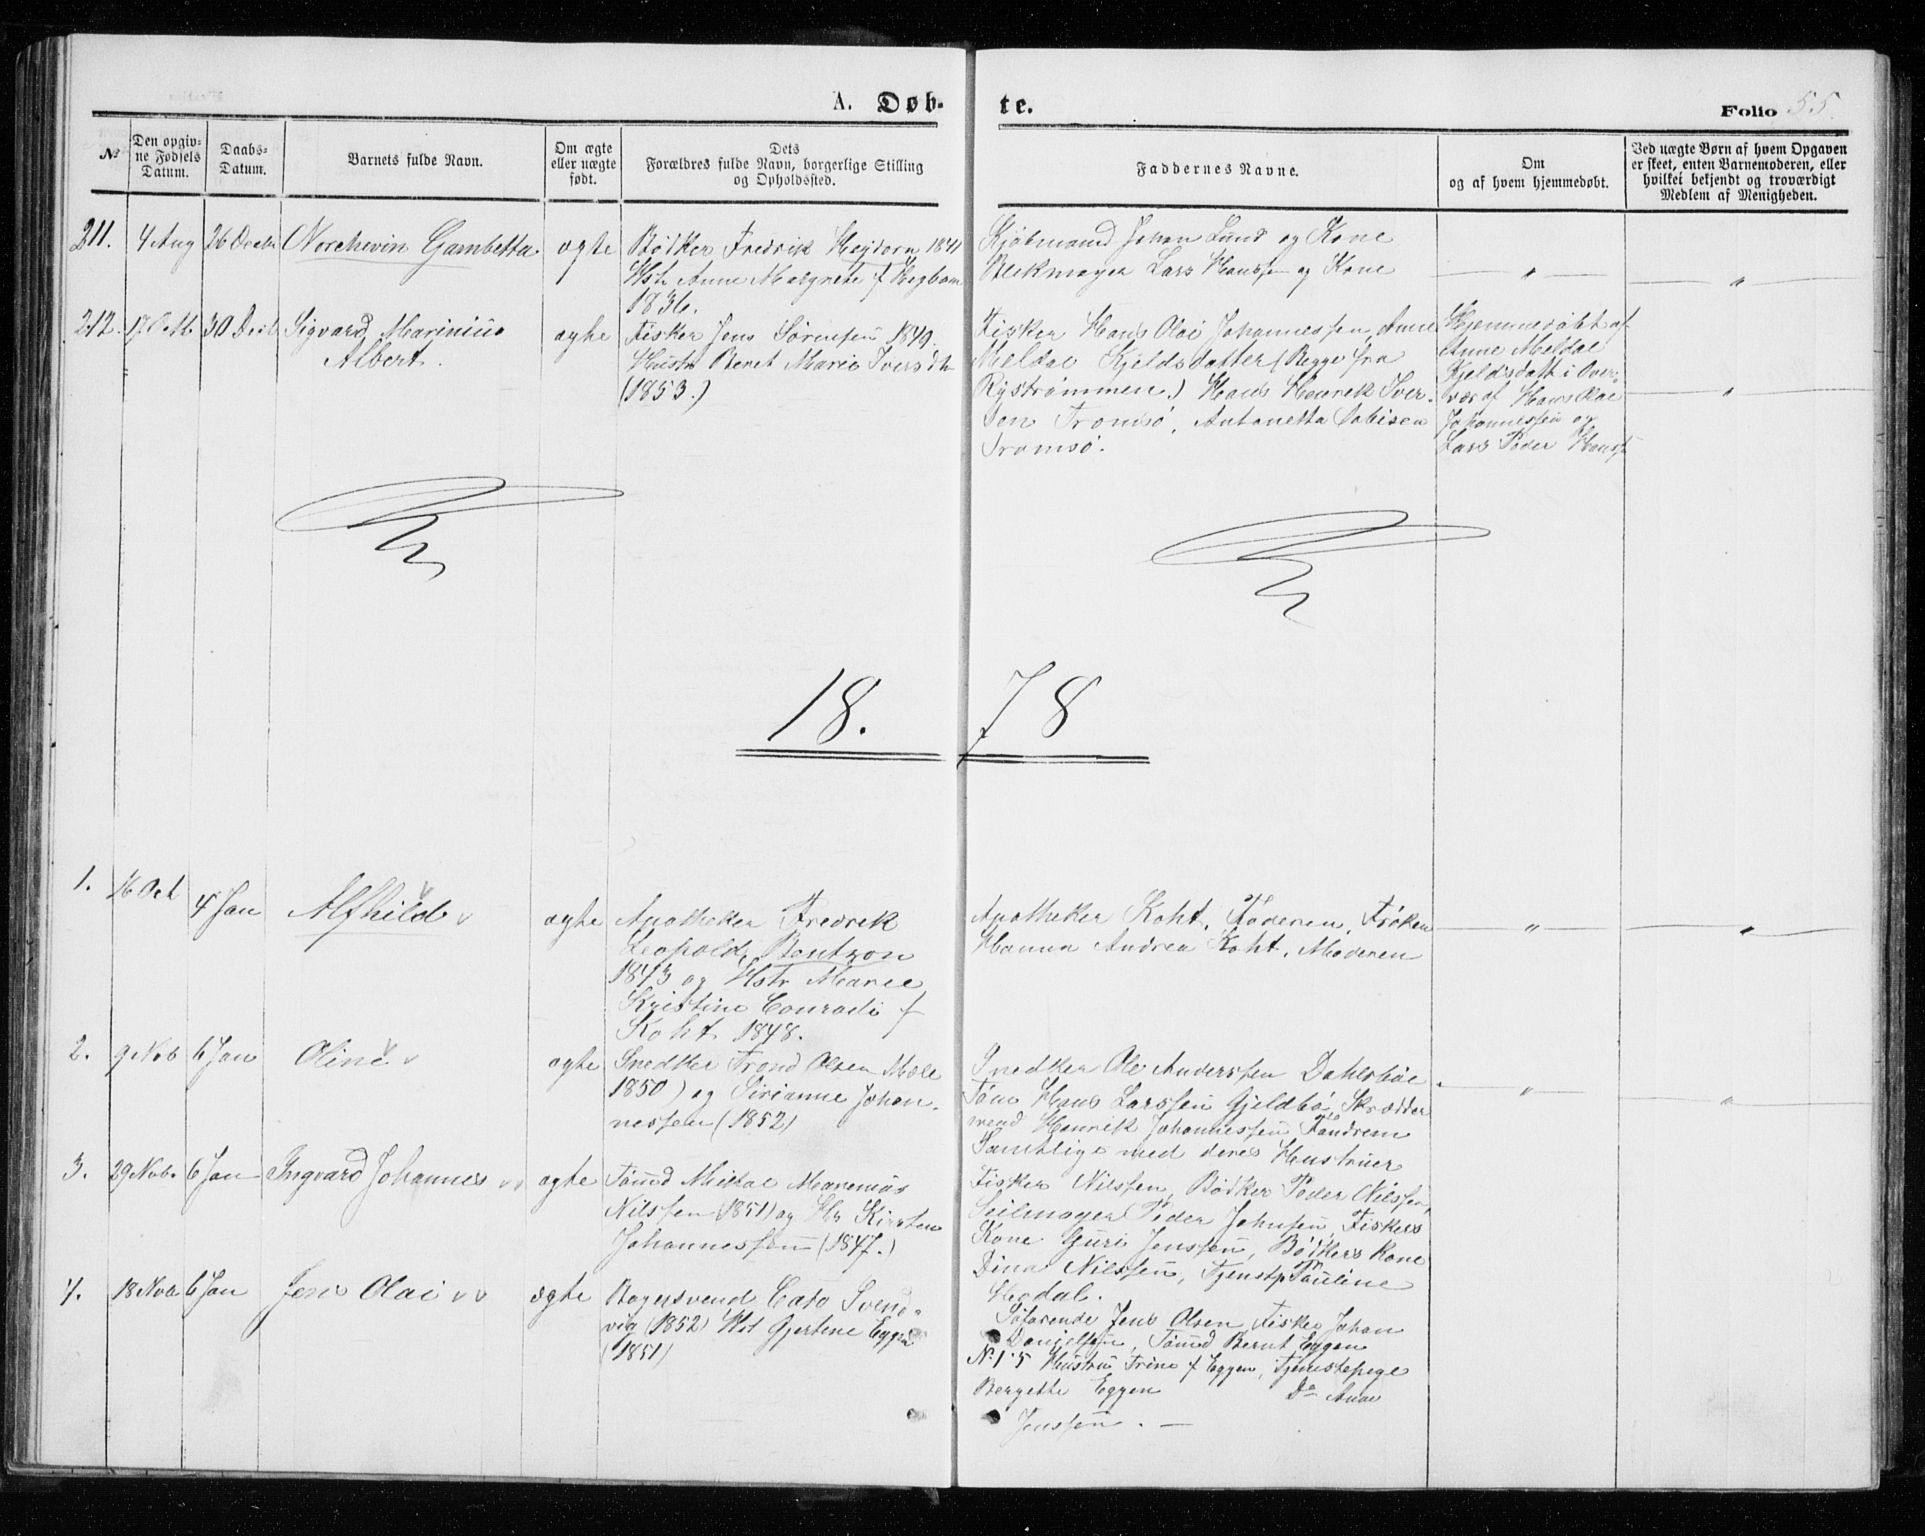 A. Døb-
te.
Folio 55.
№
Den opgiv-
ne Fødsels
Datum.
Daabs-
Datum.
Barnets fulde Navn.
Om ægte
eller uægte
født.
Dets
Forældres fulde Navn, borgerlige Stilling
og Opholdssted.
Faddernes Navne.
Om
og af hvem hjemmedøbt.
Ved uægte Børn af hvem Opgaven
er skeet, enten Barnemoderen, eller
hvilket bekjendt og troværdigt
Medlem af Menigheden.
211.
4 Aug
26 Decbr
Norchevin Gambetta
ægte
Bødker Fredrik Heydorn 1841
Hst Anne Margrete f Hegbom
1836.
Kjøbmand Johan Lund og Kone
Blikmager Lars Hanssen og Kone
"
"
212.
17 Octb
30 Decb
Sigvard Marinius
Albert.
ægte
Fisker Jens Sørensen 1849.
Hustr Beret Marie Iversdtr
(1853.)
Fisker Hans Olai Johannessen, Anne
Meldal Kjeldsdatter (Begge fra
Rystrømmen.) Hans Henrik Iver-
sen Tromsø, Antonetta Tobisen
Tromsø.
Hjemmedøbt af
Anne Meldal
Kjeldsdatt i Over-
vær af Hans Olai
Johannessen og
Lars Peder Hanss
"
18.78
1.
16 Oct
4 Jan
Alfhild v
ægte
Apotheker Fredrik
Leopold Bentzon
1843 og Hstr Marie
Kristine Conradi f
Koht 1848.
Apotheker Koht, Faderen, Frøken
Hanna Andrea Koht, Moderen
"
"
2.
9 Nob
6 Jan
Oline v
ægte
Snedker Trond Olsen Mæle
1850) og Sirianne Johan-
nessen (1852)
Snedker Ole Anderssen Dahlsbøe
Tøm Hans Larssen Gjeldbø, Skrædder
mend Henrik Johannessen Tandrem
Samtlige med deres Hustruer
"
"
3.
29 Nob.
6 Jan
Ingvard Johannes v v
ægte
Tømd Mikal Marenius
Nilssen (1851) og Hs Kirsten
Johannessen (1847.)
Fisker Nilssen, Bødker Peder Nilssen,
Seilmager Peder Johnsen, Fiskers
Kone Guri Jenssen, Bødkers Kone
Dina Nilssen, Tjenstp Pauline
Hegdal.
4.
18 Nob
6 Jan
Jens Olai v v
ægte
Bagersvend Cato Svend-
via (1852) Hst Gjertine Eggen
(1851)
Søfarende Jens Olsen, Fisker Johan
Danielsen, Tømd Bernt Eggen
No 1.5 Hustru Trine f Eggen, Tjenestepige
Bergette Eggen Do Anne
Jenssen. —